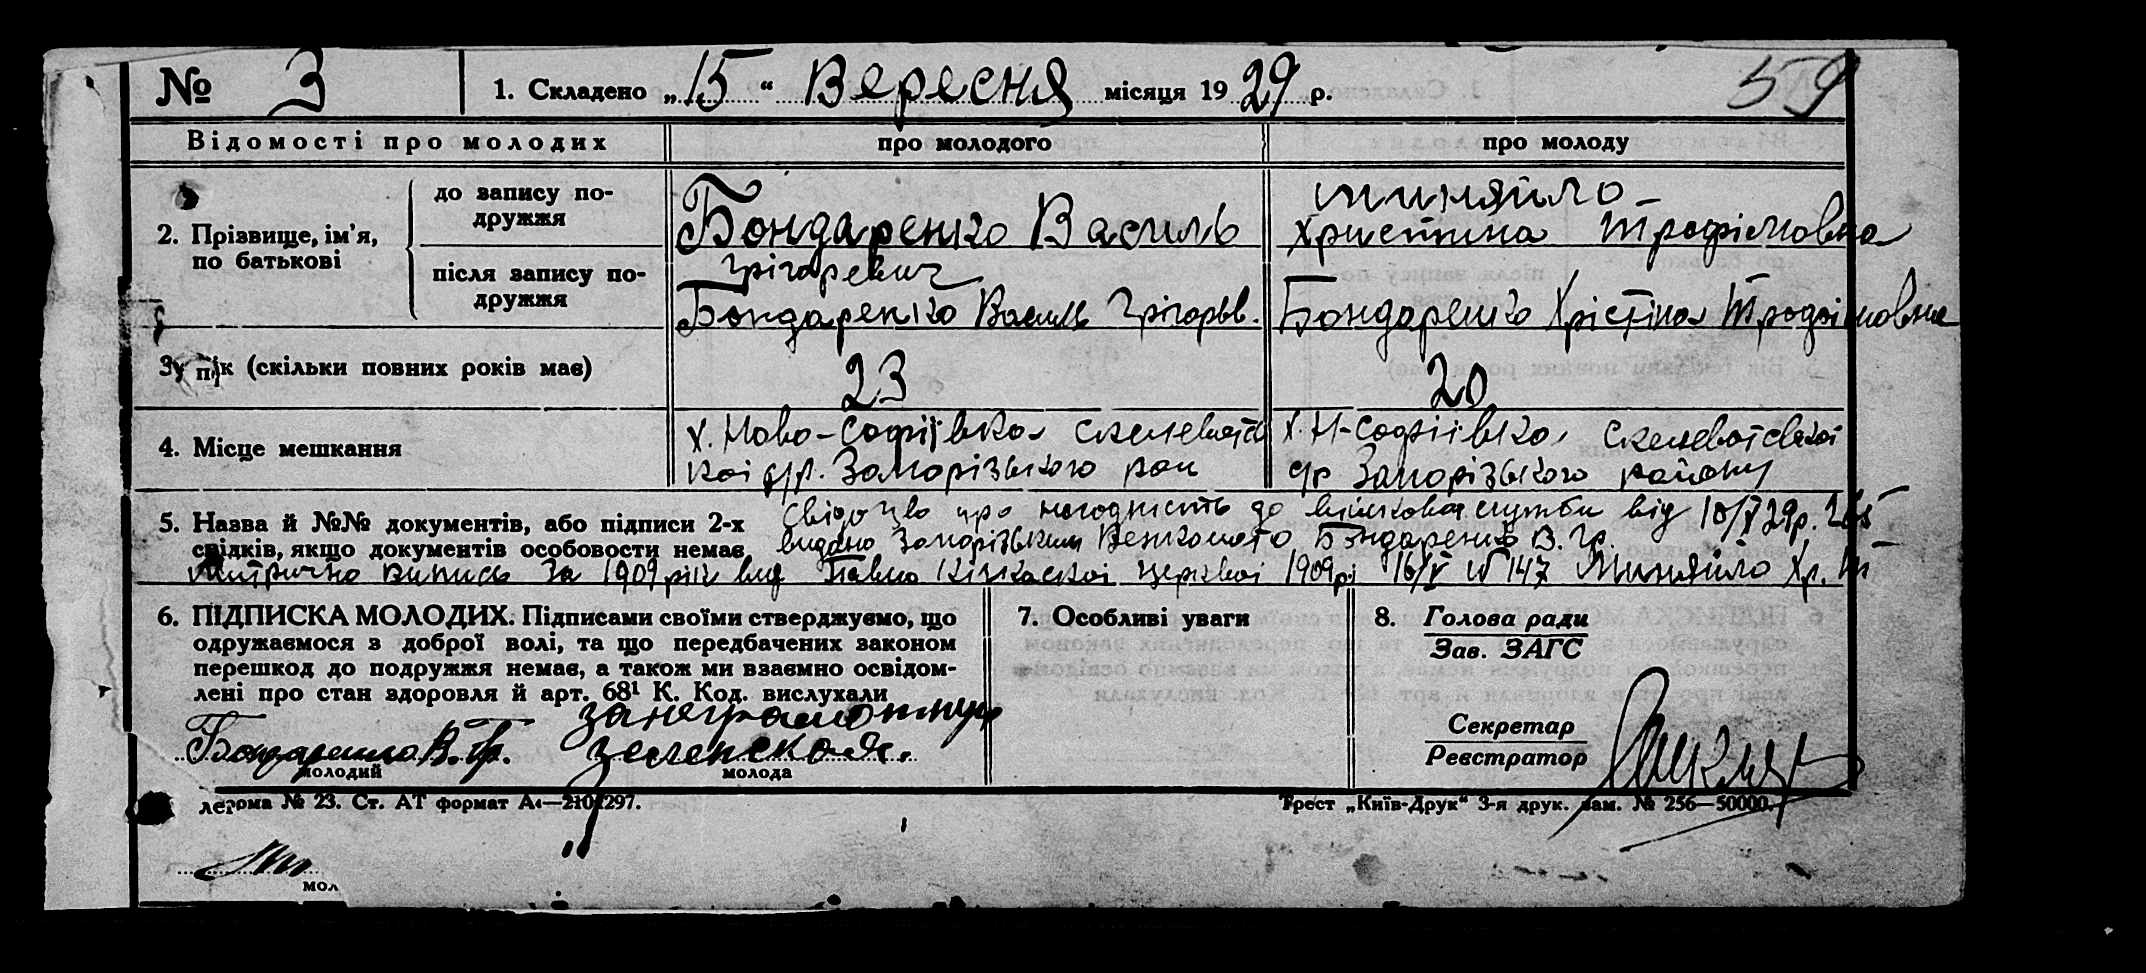 № 3 1. Складено „15“ Вересня місяця 1929 р. 59
Відомості про молодих про молодого про молоду
2. Прізвище, ім'я, по батькові
до запису по-
дружжя
Бондаренко Василь
Грігоревич
Миняйло
Христина Трофімовна
після запису по-
дружжя
Бондаренко Василь Грігорьв.
Бондаренко Хрістіна Трофімовна
3. (скільки повних років має) 23 20
4. Місце мешкання
х. Ново-Софіївка
кої с/р. Запорізького рай
х. Н-Софіївка,
с/р Запорізького району
5. Назва й №№ документів, або підписи 2-х
свідків, якщо документів особовости немає
про негодність до служби від 10/V 29р.
видано Запорізьким Бондаренко В. Гр.
за 1909 рік від церкви 1909р. 16/V № 147 Миняйло Хр. Т
6. ПІДПИСКА МОЛОДИХ. Підписами своїми стверджуємо, що
одружаємося з доброї волі, та що передбачених законом
перешкод до подружжя немає, а також ми взаємно освідом-
лені про стан здоровля й арт. 68¹ К. Код. вислухали
Бондаренко В. Гр.
молодий
за неграмотную
Зеленская.
молода
7. Особливі уваги
8. Голова ради
Зав. ЗАГС
Секретар
Реєстратор
№ 23. Ст. АТ формат А₄—210×297.
Трест „Київ-Друк“ 3-я друк. зам. № 256—50000.
мол